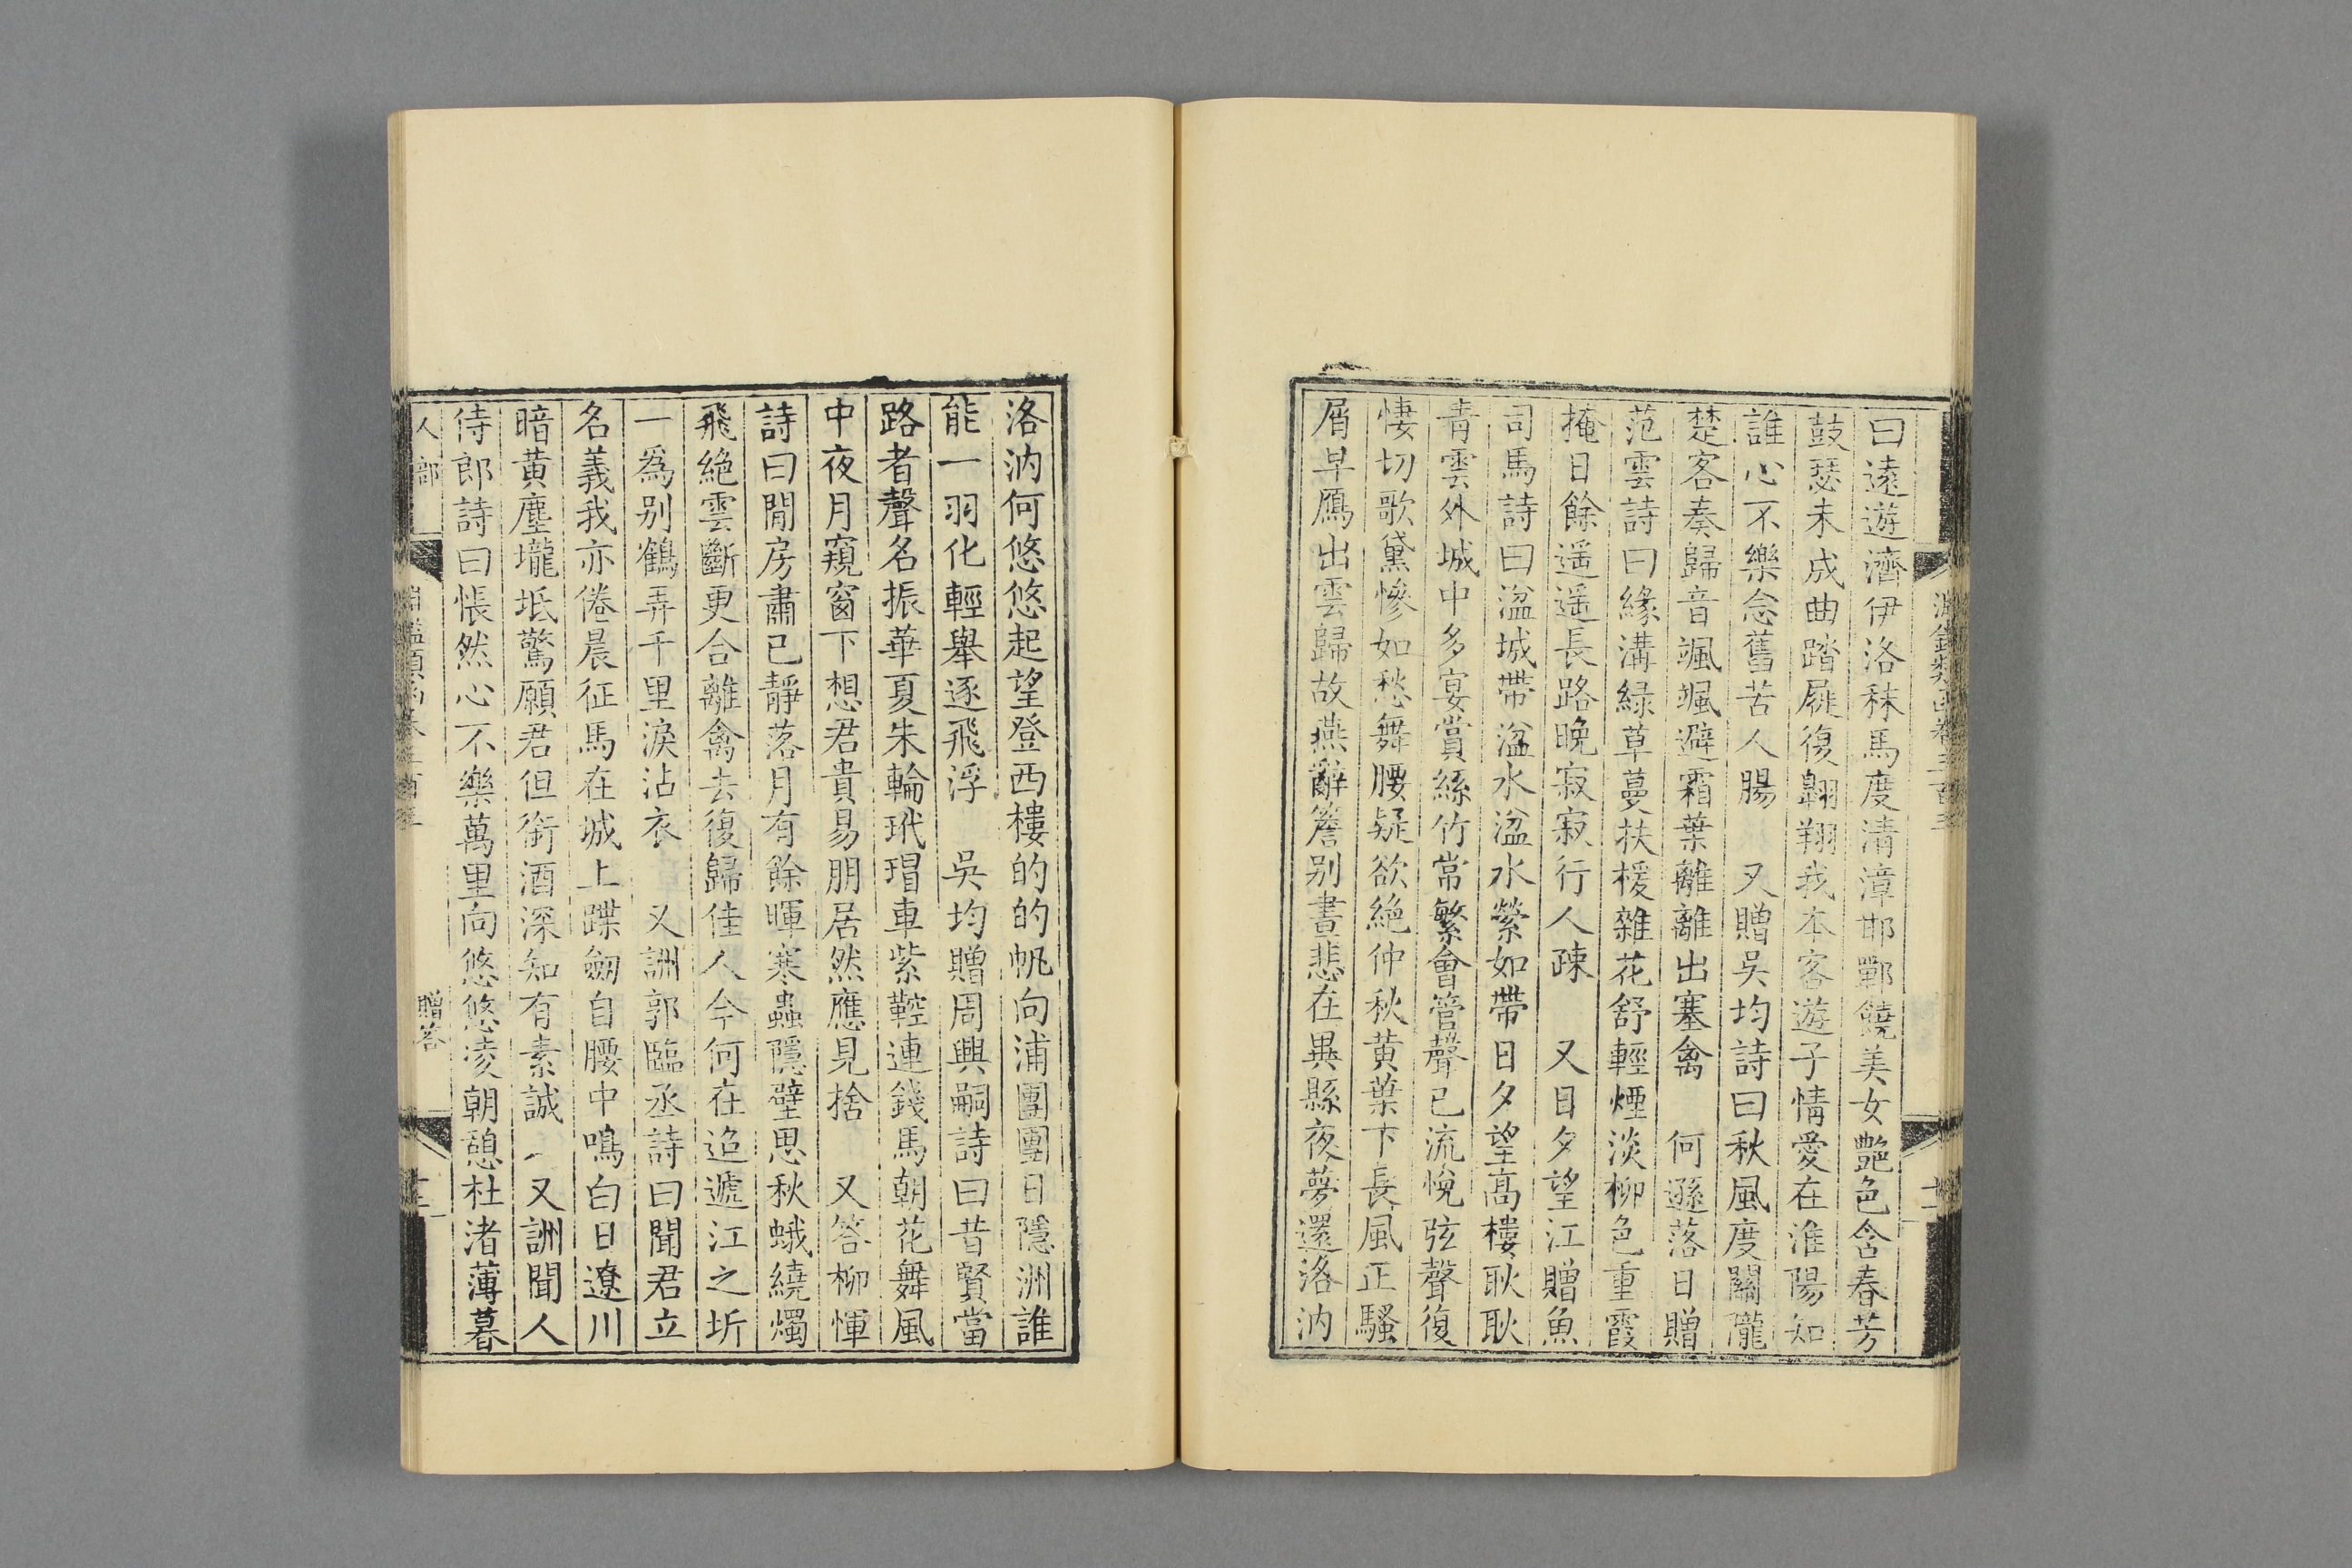 曰遠遊濟伊洛秣馬度清漳邯鄲饒美女艷色含春芳
鼓瑟未成曲踏屣復翱翔我本客遊子情愛在淮陽知
誰心不樂念舊苦人腸　又贈吳均詩曰秋風度關隴
楚客奏歸音颯颯避霜葉離離出塞禽　何遜落日贈
范雲詩曰緣溝綠草蔓扶楥雜花舒輕煙淡柳色重霞
掩日餘遥遥長路晚寂寂行人疎　又日夕望江贈魚
司馬詩曰湓城帶湓水湓水縈如帶日夕望高樓耿耿
青雲外城中多宴賞絲竹常繁會管聲已流悅弦聲復
悽切歌黛慘如愁舞腰疑欲絶仲秋黄葉下長風正騷
屑早鴈出雲歸故燕辭簷别晝悲在異縣夜夢還洛汭
洛汭何悠悠起望登西樓的的帆向浦團團日隱洲誰
能一羽化輕舉逐飛浮　吳均贈周興嗣詩曰昔賢當
路者聲名振華夏朱輪玳瑁車紫鞚連錢馬朝花舞風
中夜月窺窗下想君貴易朋居然應見捨　又答柳惲
詩曰閒房肅已靜落月有餘暉寒蟲隱壁思秋蛾繞燭
飛絶雲斷更合離禽去復歸佳人今何在迢遞江之圻
一爲别鶴弄千里淚沾衣　又詶郭臨丞詩曰聞君立
名義我亦倦晨征馬在城上蹀劒自腰中鳴白日遼川
暗黄塵壠坻驚願君但銜酒深知有素誠　又詶聞人
侍郎詩曰悵然心不樂萬里向悠悠凌朝憩杜渚薄暮
人部
贈答